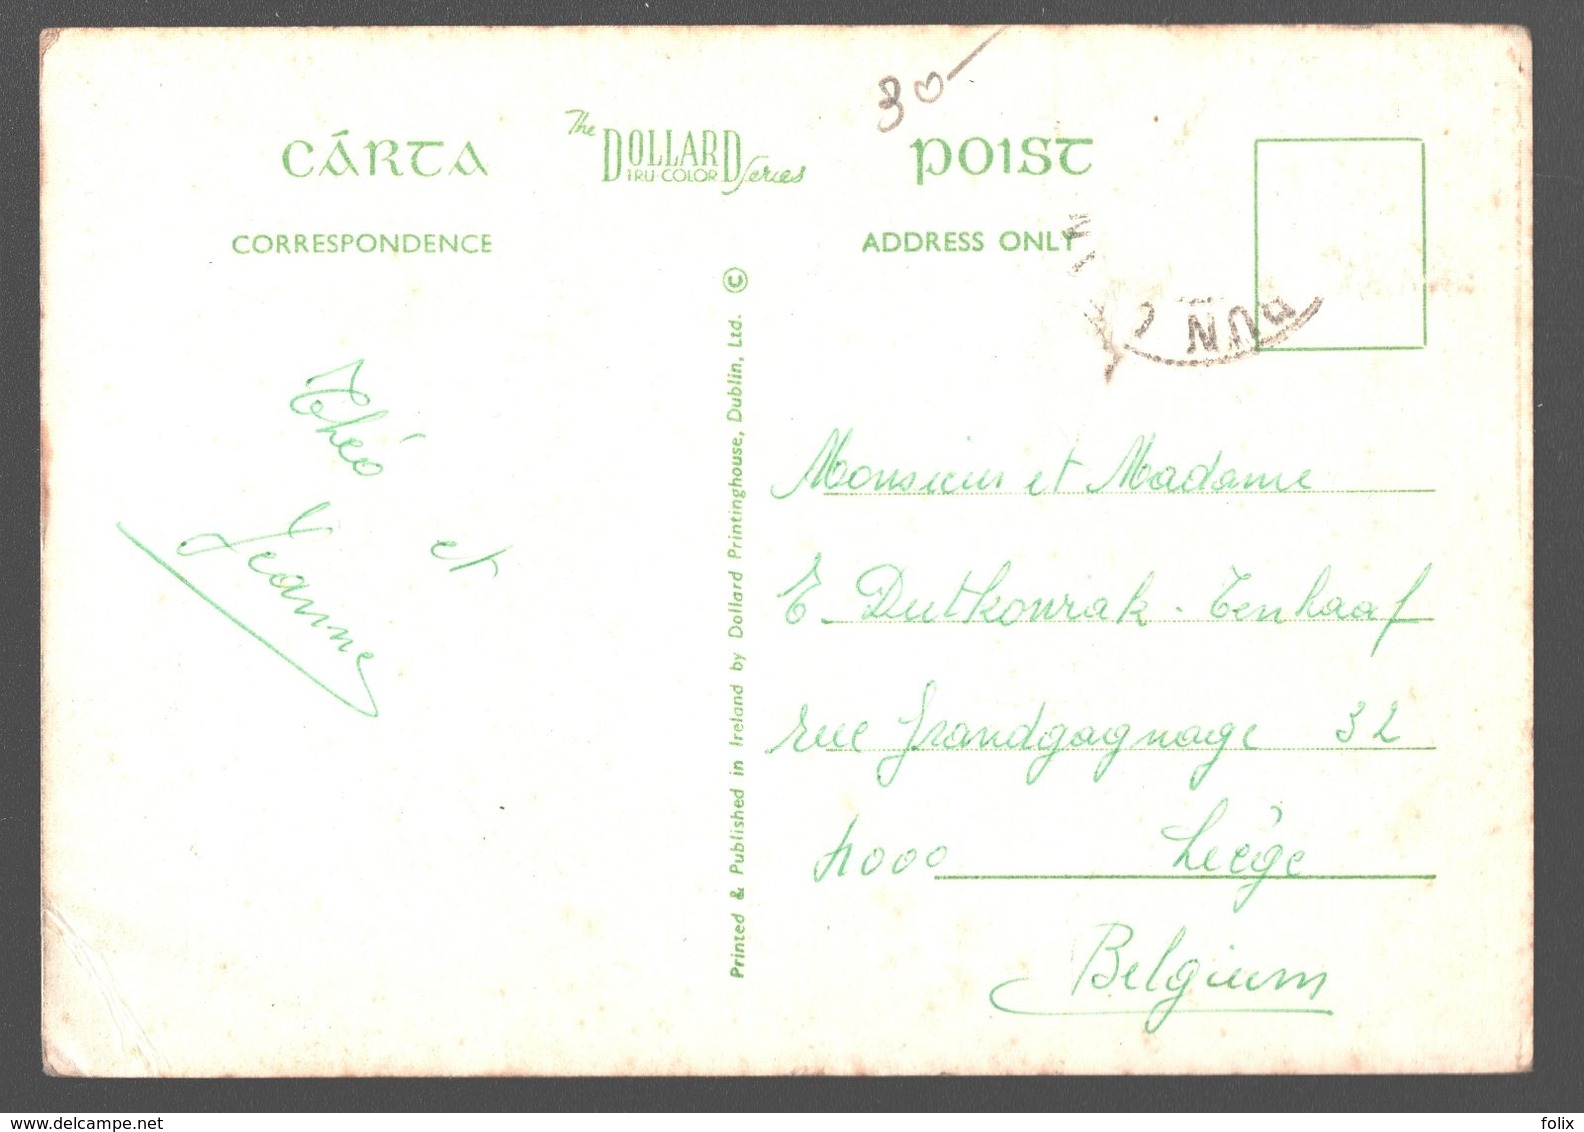 30
CÁRTA
The DOLLARD Series
TRU-COLOR
POIST
CORRESPONDENCE
ADDRESS ONLY
Théo
et
Jeanne
Printed & Published in Ireland by Dollard Printinghouse, Dublin, Ltd. ©
Monsieur et Madame
E. Dutkonrak - Tenhaaf
rue Grandgagnage 32
4000 Liège
Belgium
www.delcampe.net
felix